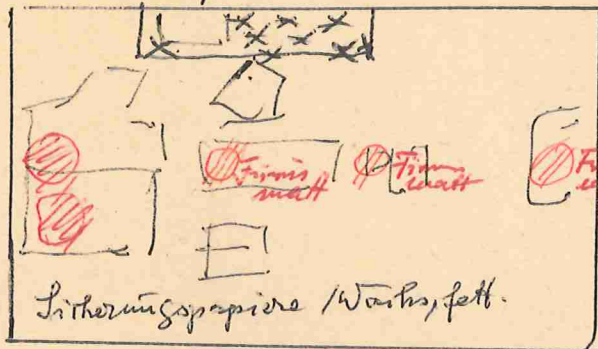 Firnis
matt
Firnis
matt
Sicherungspapiere / Wachs, fett.